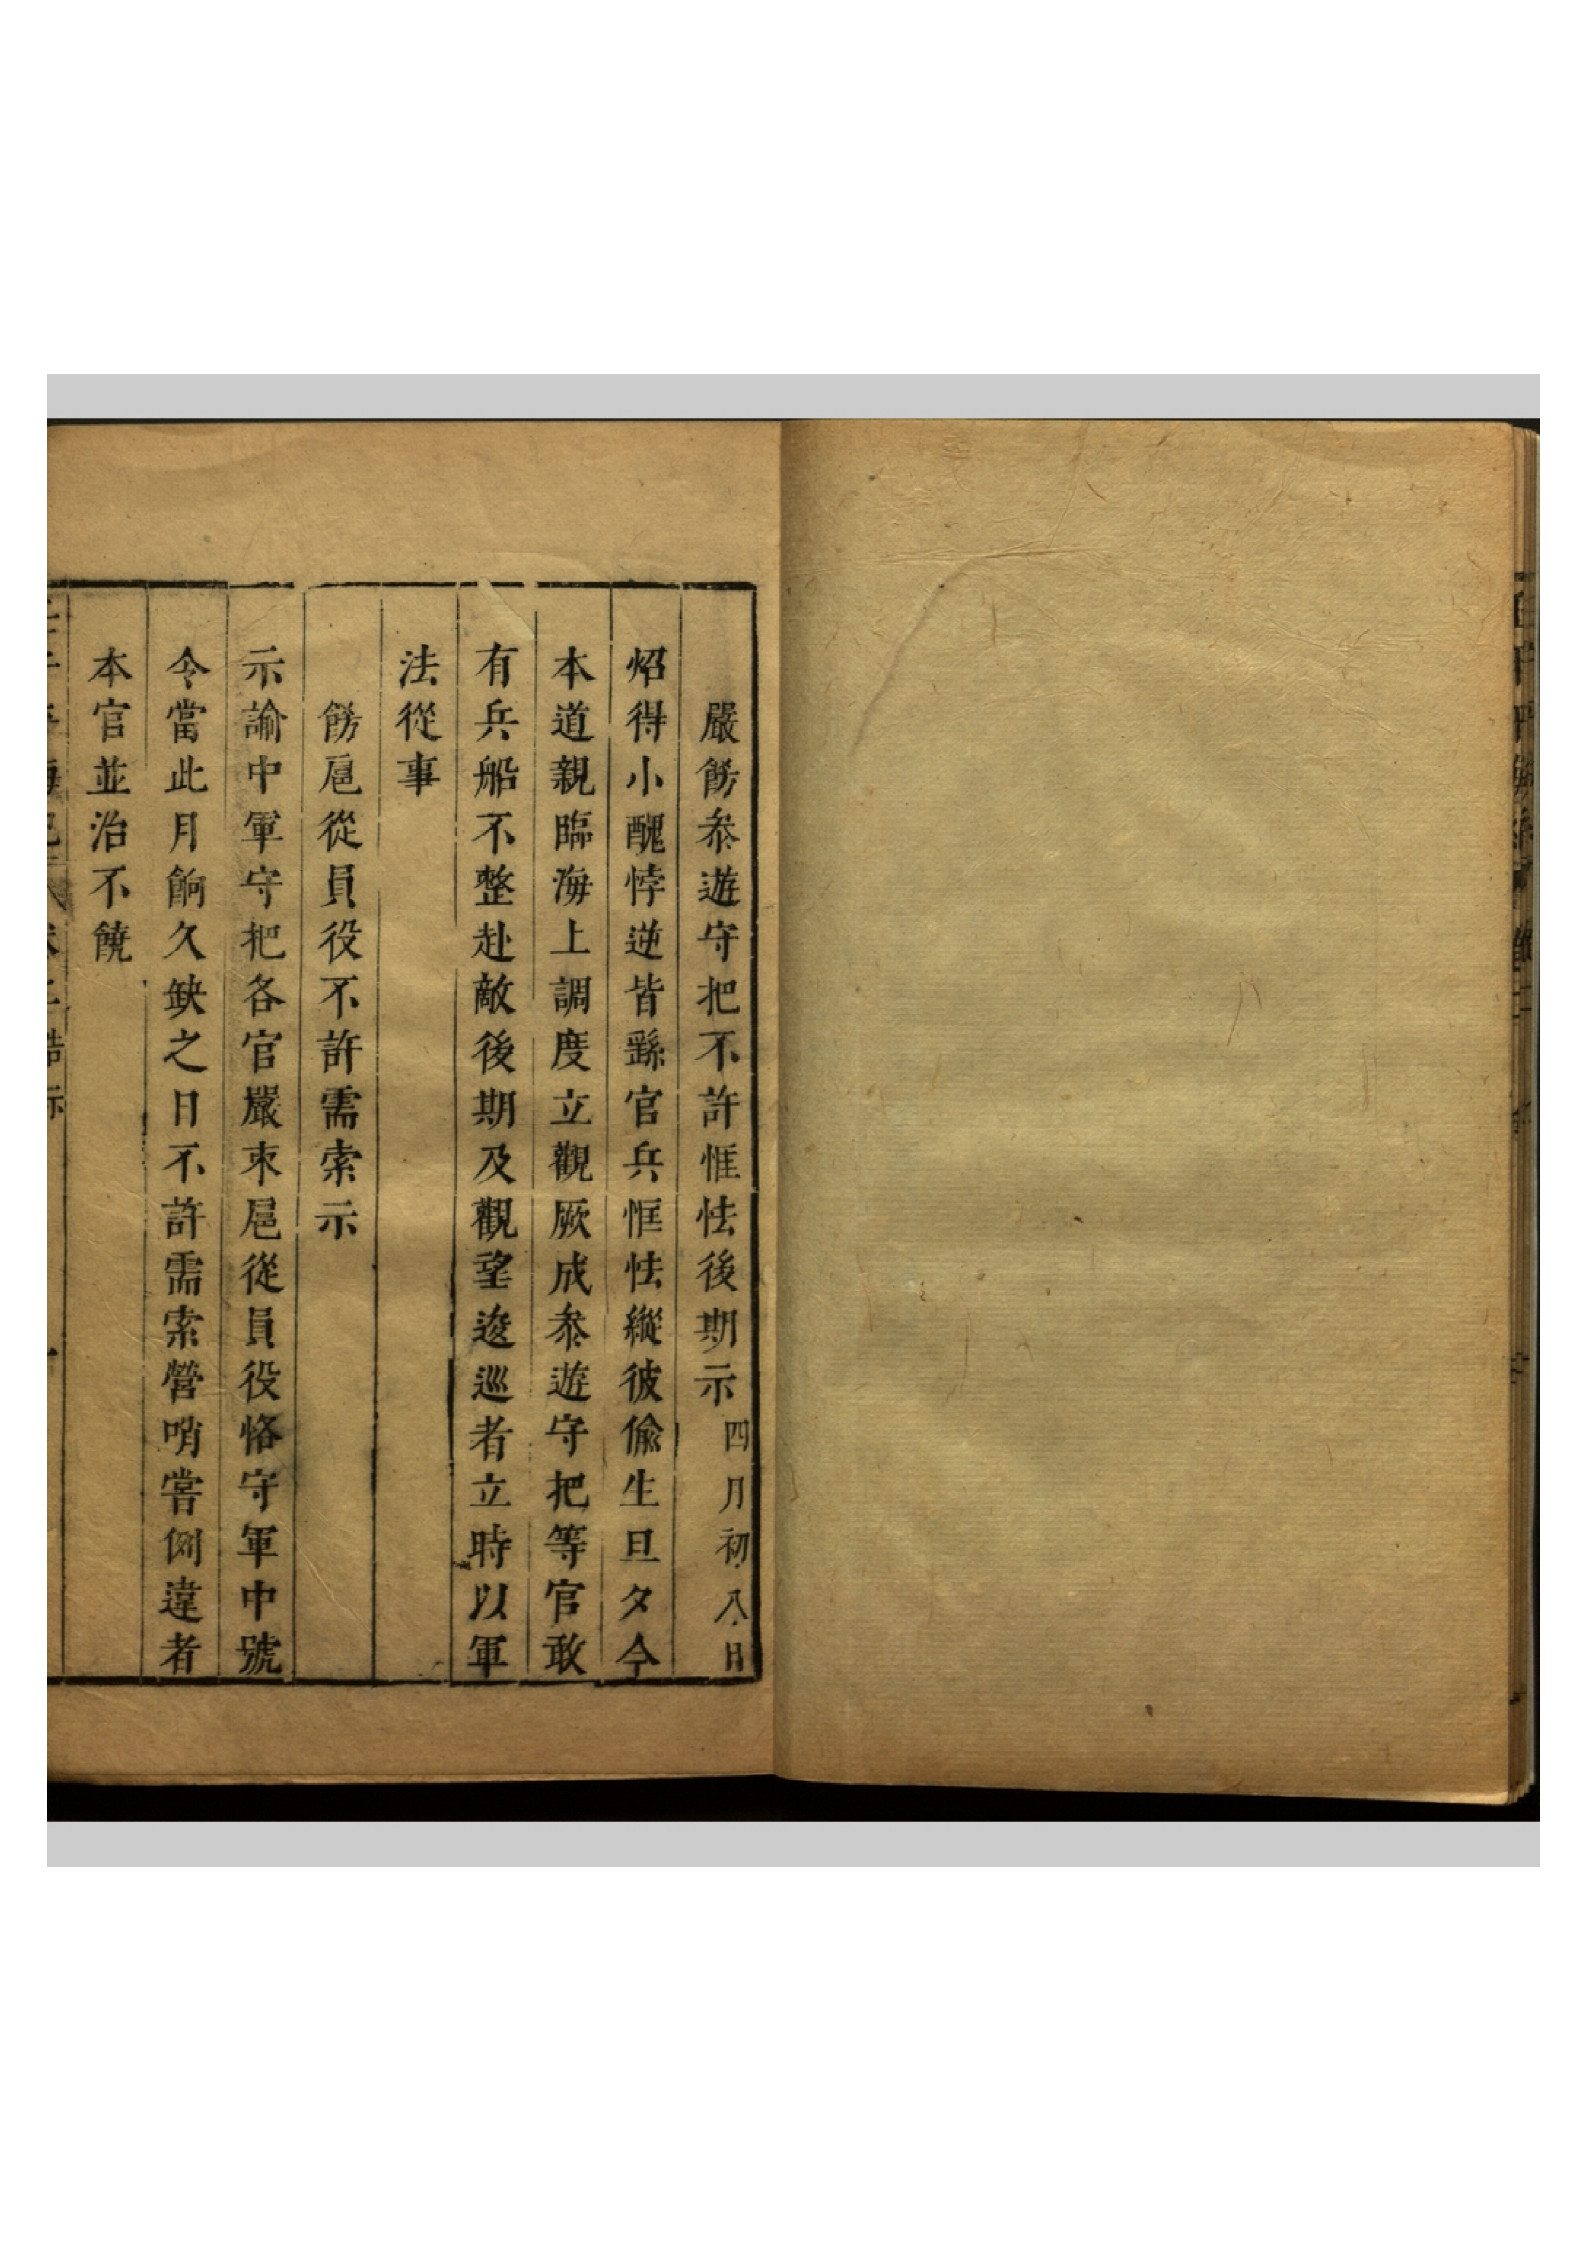 嚴飭叅遊守把不許恇怯後期示 四月初八日
炤得小醜悖逆皆繇官兵恇怯縱彼偷生旦夕今
本道親臨海上調度立觀厥成叅遊守把等官敢
有兵船不整赴敵後期及觀望逡巡者立時以軍
法從事
飭扈從員役不許需索示
示諭中軍守把各官嚴束扈從員役恪守軍中號
令當此月餉久缺之日不許需索營哨嘗例違者
本官並治不饒